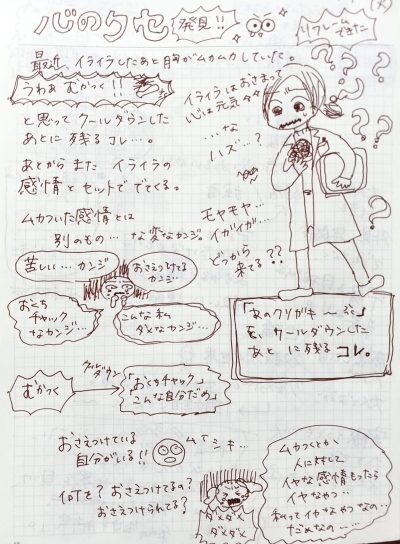 心のクセ 発見!!
リフレームできた
最近、イライラしたあと胸がムカムカしていた。
うわぁ むかつく!!
と思って クールダウンした
あとに 残る コレ…。
あとから また イライラの
感情と セットで でてくる。
ムカついた感情とは
別のもの… な変なカンジ。
イライラは おさまって
心は元気
…な
ハズ…?
モヤモヤ…
イガイガ…
どっから
来てる??
苦しい… カンジ
おさえつけてる
カンジ…
おくち
チャック
なカンジ…
こんな私
ダメなカンジ…
を、クールダウンした
あと に 残る コレ。
むかつく
クールダウン
「おくちチャック」
こんな自分だめ」
おさえつけている
自分がいる!!
ムイシキ…
何を? おさえつけてるの?
おさえつけられてる?
ダメダメ
ダメダメ
ムカつくとか
人に対して
イヤな感情もったら
イヤなやつ…
私ってイヤなやつなの…
だめなの…